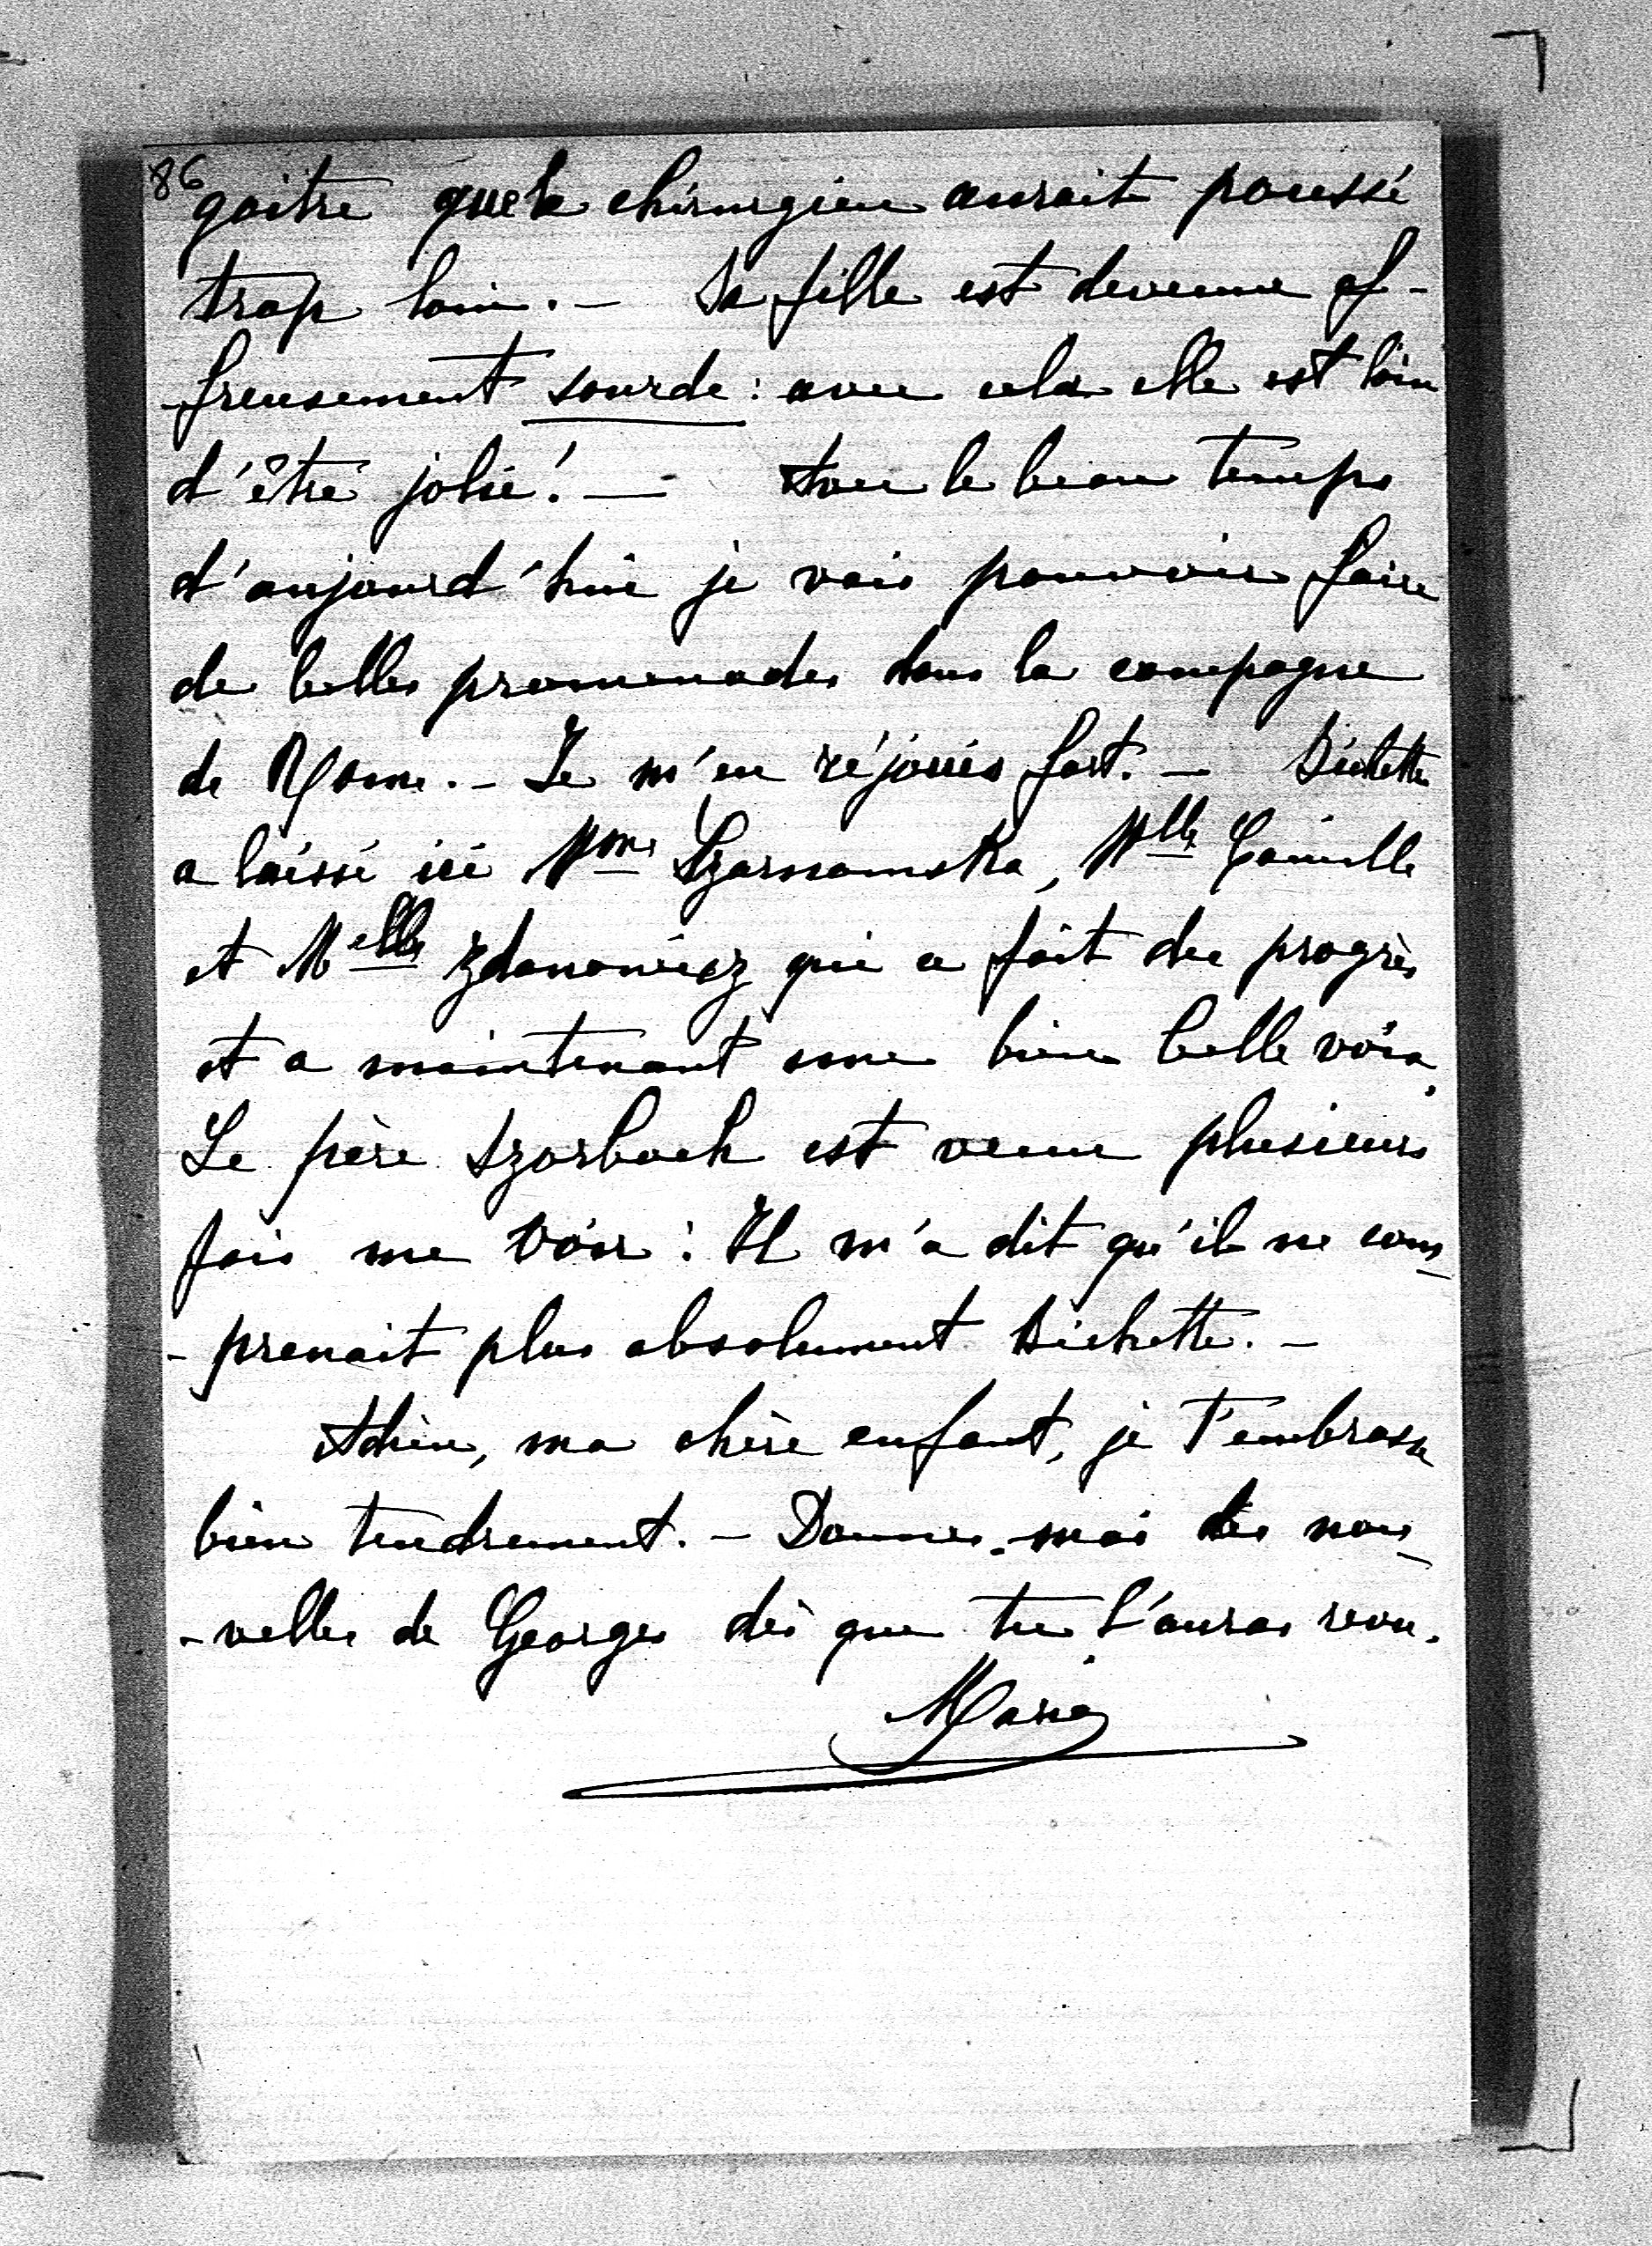 86
goitre que le chirurgien aurait poussé
trop loin. — Sa fille est devenue af-
-freusement sourde : avec cela elle est loin
d'être jolie ! — Avec le beau temps
d'aujourd'hui je vais pouvoir faire
de belles promenades dans la campagne
de Rome. — Je m'en réjouis fort. — Bichette
a laissé ici Mme Szarnamska, Mlle Camille
et Melle Zdanowicz qui a fait des progrès
et a maintenant une bien belle voix.
Le père Szorbach est venu plusieurs
fois me voir : Il m'a dit qu'il ne com-
- prenait plus absolument Bichette. —
Adieu, ma chère enfant, je t'embrasse
bien tendrement. — Donnes-moi des nou-
-velles de Georges dès que tu l'auras revu.
Marie